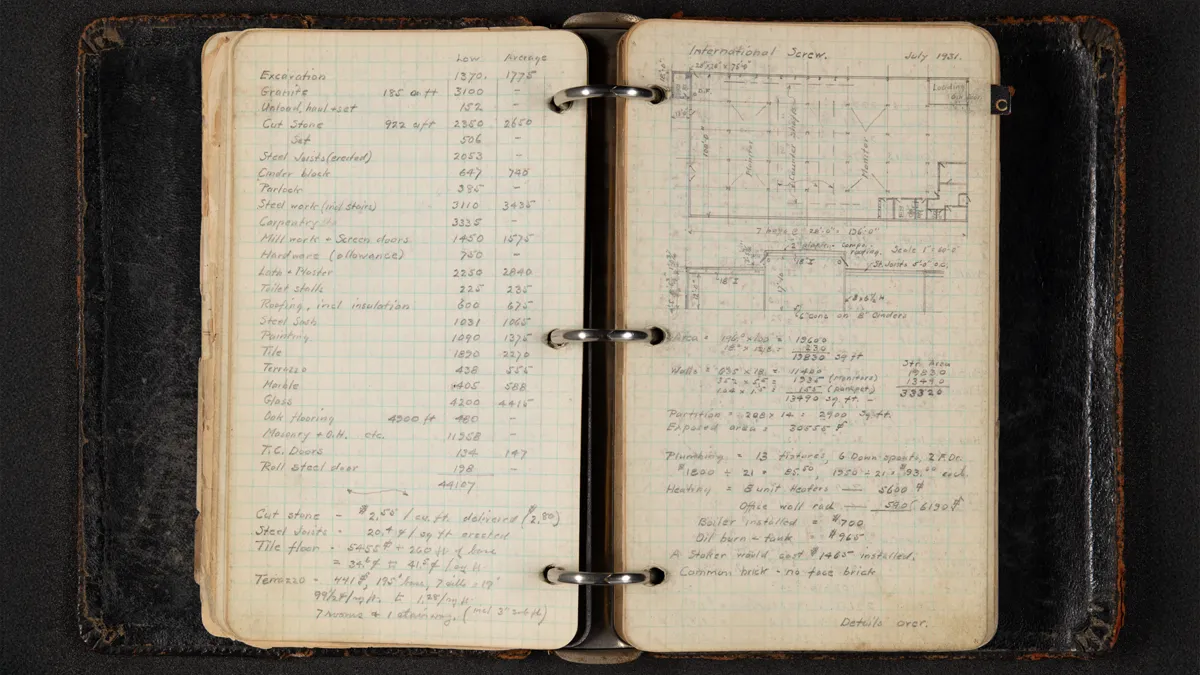 Low Average
Excavation 1370. 1775
Granite 185 cu ft 3100 -
Unload, haul + set 152 -
Cut Stone 922 cu ft 2350 2650
Set 506 -
Steel Joists (erected) 2053 -
Cinder block 647 740
Parlock 385 -
Steel work (incl. stairs) 3110 3435
Carpentry 3335 -
Mill work + Screen doors 1450 1575
Hardware (allowance) 750 -
Lath + Plaster 2250 2840
Toilet stalls 225 235
Roofing, incl insulation 600 675
Steel Sash 1031 1065
Painting 1090 1375
Tile 1890 2270
Terrazzo 438 555
Marble 405 588
Glass 4200 4415
Oak flooring 4900 ft 480 -
Masonry + O.H. etc. 11958 -
T.C. Doors 134 147
Roll steel door 198 -
44107
Cut stone - $2.55 / cu. ft. delivered ($2.80)
Steel Joists - 20.4¢ / sq ft erected
Tile floor - 5455 + 260 ft of base
= 34.6¢ to 41.6¢ / sq ft
Terrazzo = 441, 195' base,
to 1.28/sq ft.
& 1 stairway.
International Screw. July 1931.
Loading
100'-0"
Monitor
Counter
Monitor
7 bays @ 28'-0" = 196'-0"
Scale 1" = 60'-0"
Roofing
18" I
St. Joists 5'-0" o.c.
18" I
8 x 6½ H
6" Conc on 8" Cinders
Area = 196 x 100 = 19600
230
19830 sq ft
Walls = 635 x 18 = 11400
352 x 5.5 = 1935 (monitors)
155 (parapet)
13490 sq. ft. -
Str. Area
19830
13490
33320
Partition = 208 x 14 = 2900 sq. ft.
Exposed area =
Plumbing = 13 fixtures, 6 Down spouts, 2 F. Dr.
$1800 ÷ 21 = 85.50, 1950 ÷ 21 = $93.00 each
Heating = 8 unit Heaters — 5600
Office wall rad. — 590 6190
Boiler installed = $700
Oil burn + tank = $965
A Stoker would cost $1465 installed.
Common brick - no face brick
Details over.
C